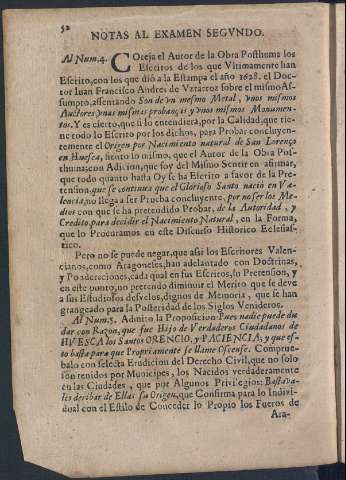 52
NOTAS AL EXAMEN SEGVNDO.
Al Num. 4. COteja el Autor de la Obra Posthuma los
Escritos de los que Vltimamente han
Escrito, con los que diò a la Estampa el año 1628. el Doc-
tor Iuan Francisco Andres de Vztarroz sobre el mismo As-
sumpto, assentando Son de vn mesmo Metal, vnos mismos
Auctores, vnas mismas probanças, y vnos mismos Monumen-
tos. Y es cierto, que si lo entendiera, por la Calidad, que tie-
ne todo lo Escrito por los dichos, para Probar concluyen-
temente el Origen por Nacimiento natural de San Lorenço
en Huesca, siento lo mismo, que el Autor de la Obra Pos-
thuma; con Adicion, que soy del Mismo Sentir en afirmar,
que todo quanto hasta Oy se ha Escrito a favor de la Pre-
tension, que se continua que el Glorioso Santo naciò en Va-
lencia, no llega a ser Prueba concluyente, por no ser los Me-
dios con que se ha pretendido Probar, de la Autoridad, y
Credito, para decidir el Nacimiento Natural, en la Forma,
que lo Procuramos en este Discurso Historico Eclesias-
tico.
Pero no se puede negar, que assi los Escritores Valen-
cianos, como Aragoneses, han adelantado con Doctrinas,
y Ponderaciones, cada qual en sus Escritos, su Pretension, y
en este punto, no pretendo diminuir el Merito que se deve
a sus Estudiosos desvelos, dignos de Memoria, que se han
grangeado para la Posteridad de los Siglos Venideros.
Al Num. 5. Admito la Proposicion Pues nadie puede du
dar con Razon, que fue Hijo de Verdaderos Ciudadanos de
HVESCA los Santos ORENCIO, y PACIENCIA; y que es-
to basta para que Propriamente se llame Oscense. Comprue-
balo con selecta Erudicion del Derecho Civil, que no solo
son tenidos por Municipes, los Nacidos verdaderamente
en las Ciudades, que por Algunos Privilegios: Bastava-
lis deribar de Ellas su Origen, que Confirma para lo Indivi-
dual con el Estilo de Conceder lo Propio los Fueros de
Ara-